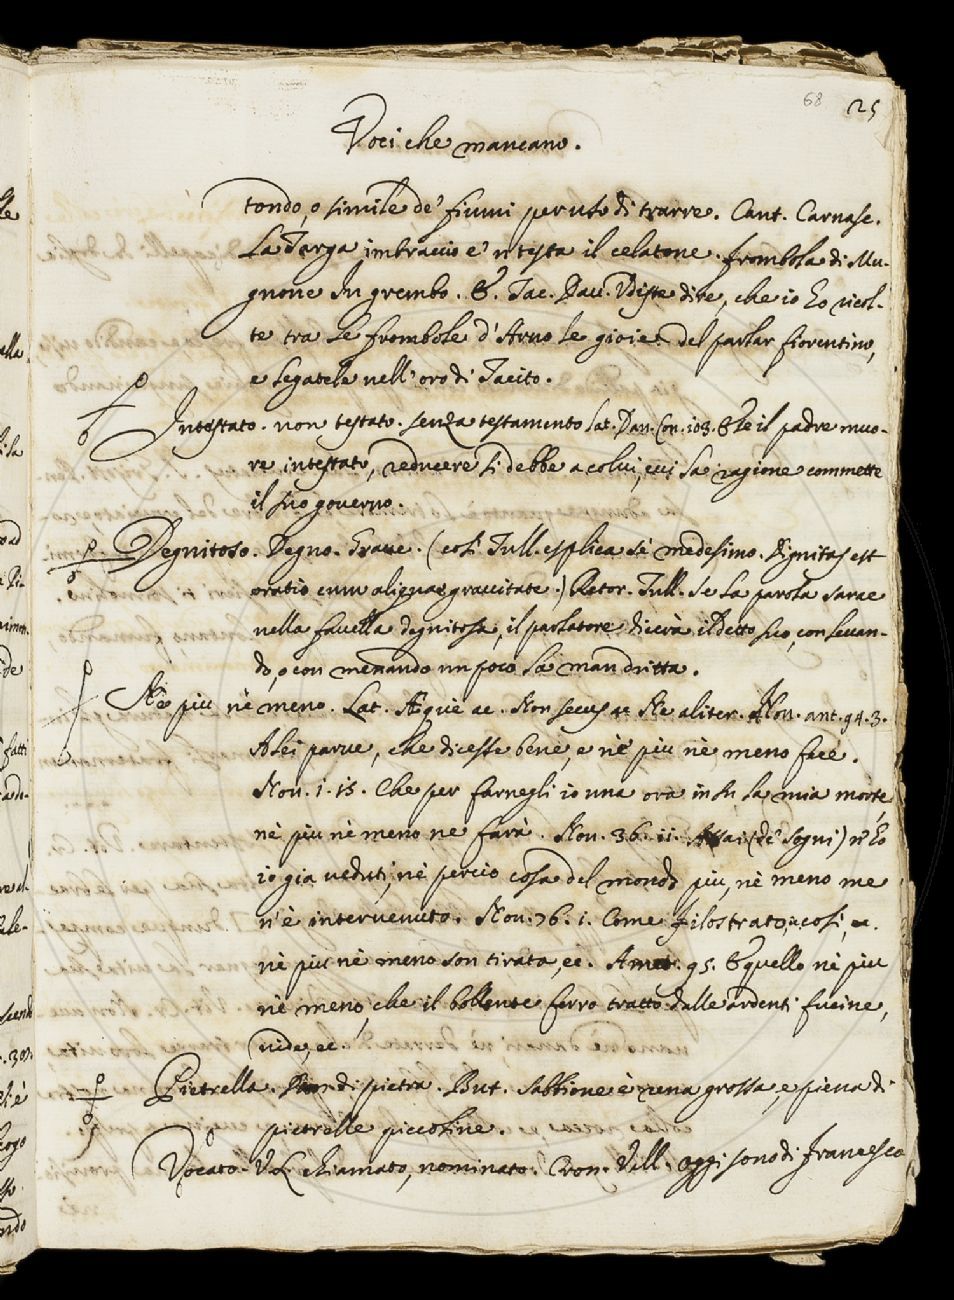 68 25
Voci che mancano.
tondo, o simile de' fiumi per uso di trarre. Cant. Carnasc.
La Targa imbraccio e' n testa il celatone. frombola di Mu-
gnone In grembo. &. Tac. Dav. Udiste dire, che io ho ricol-
te tra le frombole d'Arno le gioie del parlar fiorentino,
e legatele nell'oro di Tacito.
Intestato. non testato. senza testamento Lat. Dan. Con. 103. E se il padre muo-
re intestato, reducere si debbe a colui, cui la ragione commette
il suo governo.
Degnitoso. Degno. Grave. (così Tull. esplica sè medesimo. Dignitas est
oratio cum aliqua gravitate.) Retor. Tull. Se la parola sarae
nella favella degnitosa, il parlatore dicerà il detto suo, con levan-
do, o con menando un poco la man dritta.
Nè più nè meno. Lat. Aequè ac. Non secus ac Ne aliter. Nov. ant. 94. 3.
A lei parve, che dicesse bene, e nè più nè meno fece.
Nov. 1. 15. Che per farnegli io una ora in su la mia morte,
nè più nè meno ne farà. Nov. 36. 11. Assai (de' sogni) n' ho
io già veduti, nè perciò cosa del mondo più, nè meno me
n'è intervenuto. Nov. 76. 1. Come Filostrato, così, ec.
nè più nè meno son tirata, ec. Amet. 95. E quello nè più
nè meno, che il bollente ferro tratto dalle ardenti fucine,
vide, ec.
Pietrella. di pietra. But. Sabbione è rena grossa, e piena di
pietrelle piccoline.
Vocato. V. L. chiamato, nominato. Cron. Vell. Oggi sono di Francesco